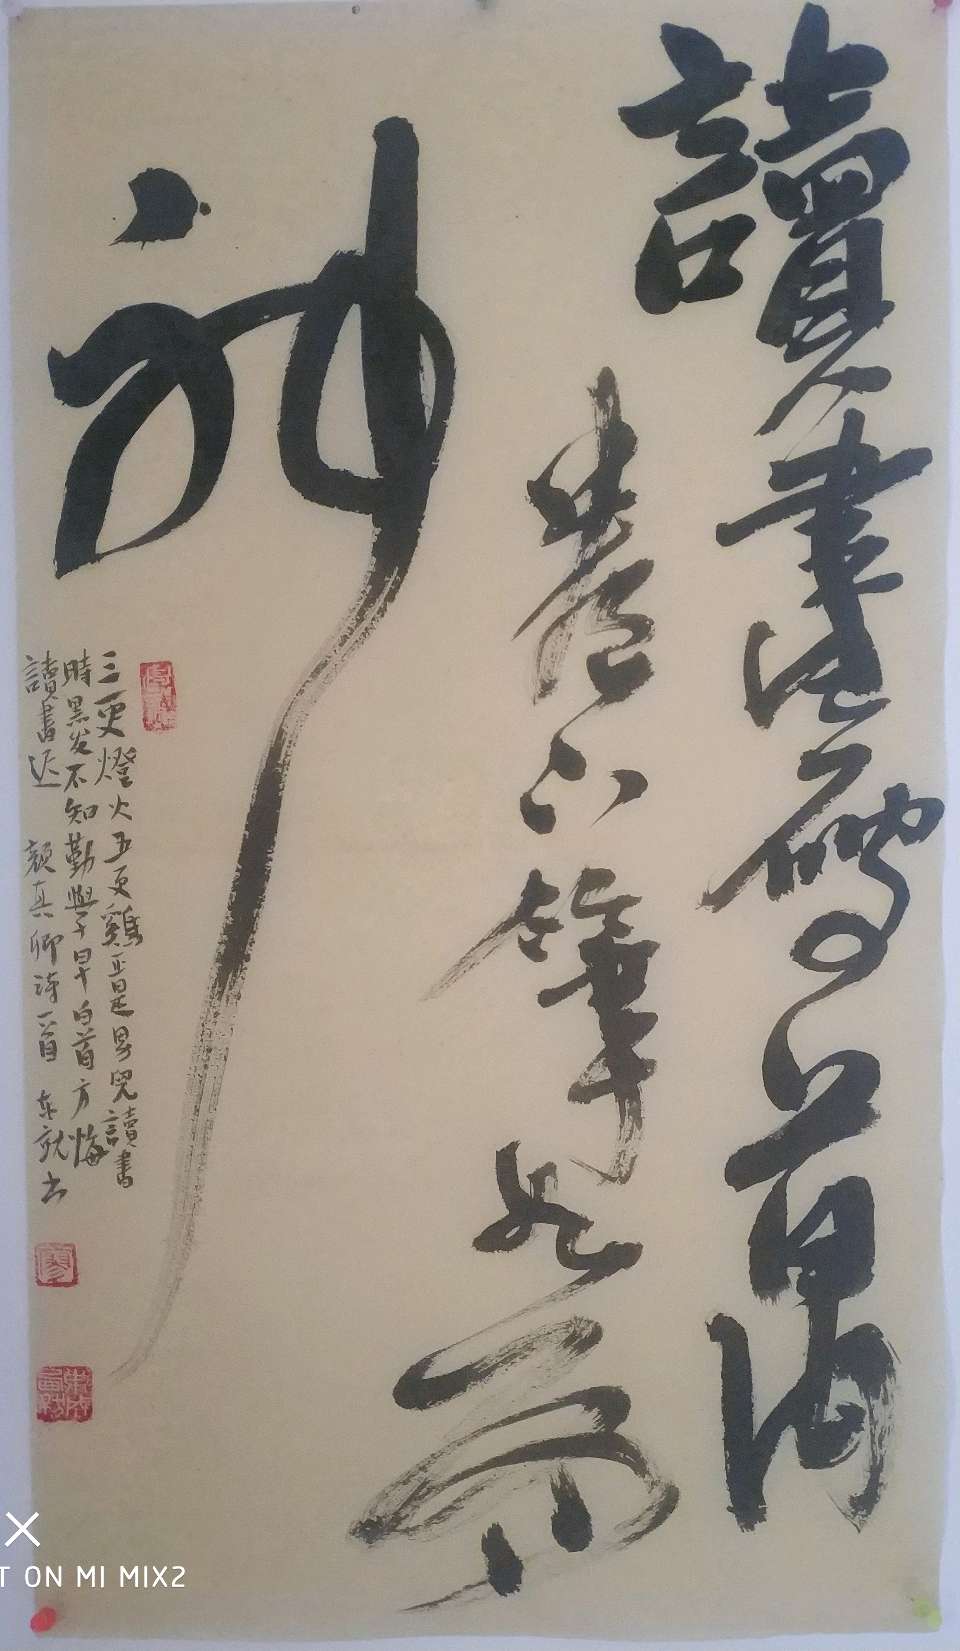 讀書破萬
卷下筆如有
神
三更燈火五更鷄正是男兒讀書
時黑发不知勤學早白首方悔
讀書迟 颜真卿诗一首 东就书
T ON MI MIX2